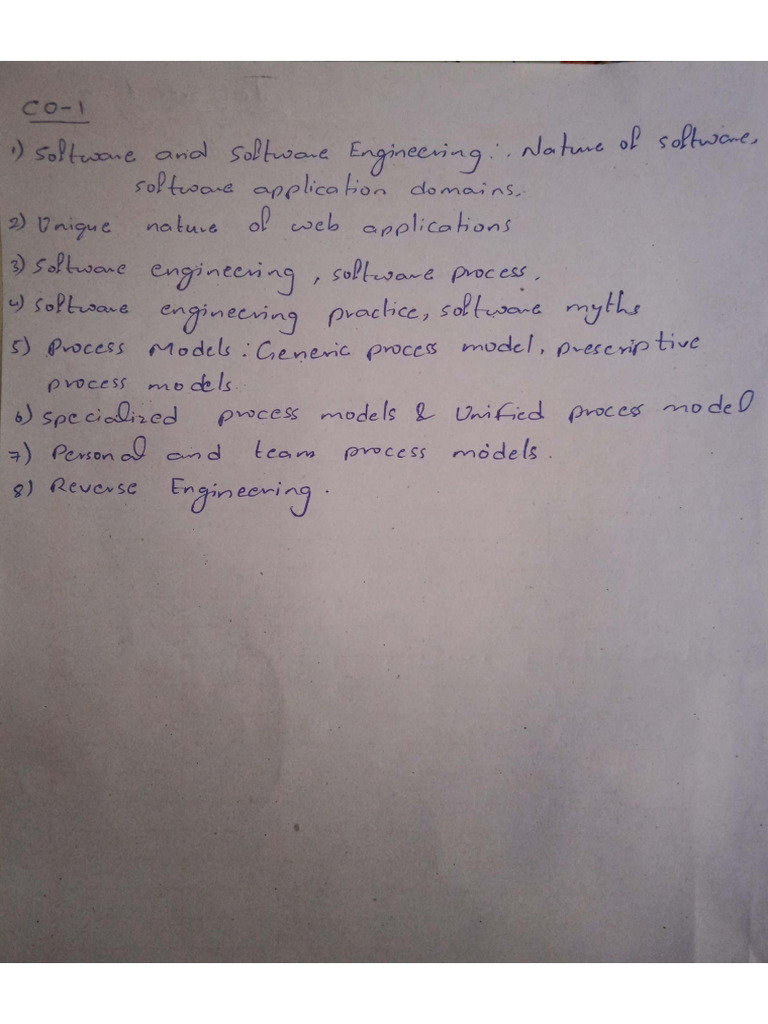 CO-1
1) Software and Software Engineering: Nature of software,
software application domains.
2) Unique nature of web applications
3) Software engineering, software process.
4) Software engineering practice, software myths
5) Process Models: Generic process model, prescriptive
process models.
6) specialized process models & Unified process model
7) Personal and team process models.
8) Reverse Engineering.